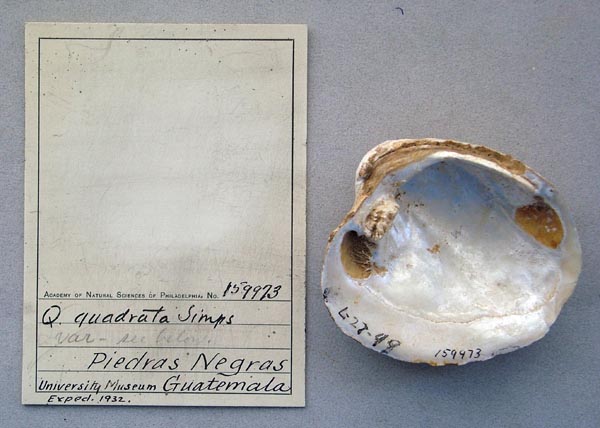 ACADEMY OF NATURAL SCIENCES OF PHILADELPHIA, NO. 159973
Q. quadrata Simps
var - see below.
Piedras Negras
University Museum Guatemala
Exped. 1932.
L-28-99
159973